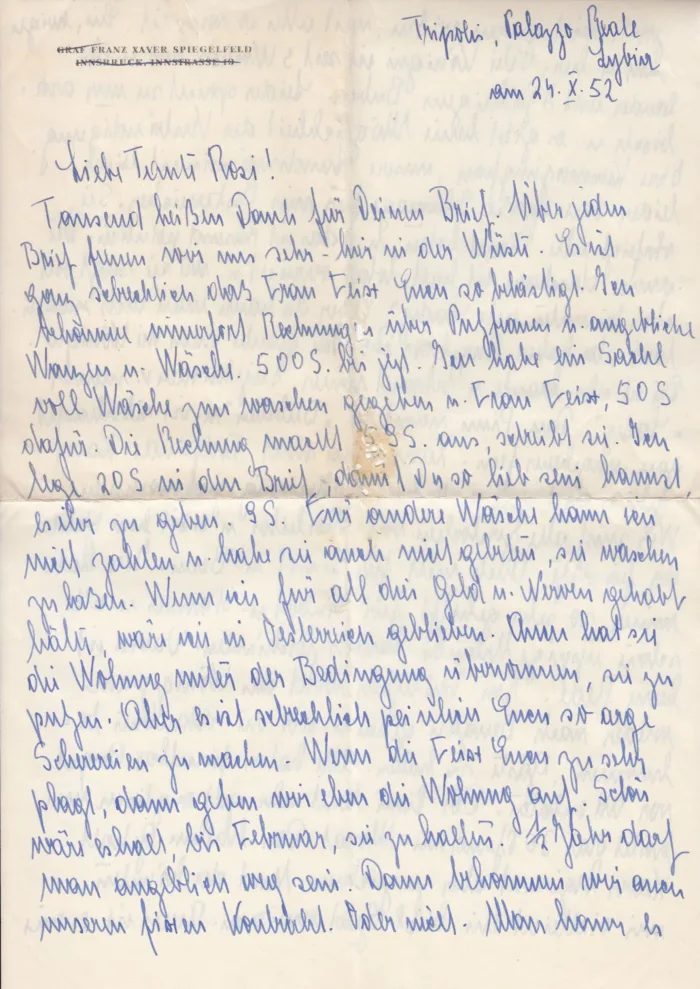 GRAF FRANZ XAVER SPIEGELFELD
INNSBRUCK, INNSTRASSE 19
Tripolis, Palazzo Reale
Lybien
am 24. X. 52
Liebe Tante Rosi!
Tausend heißen Dank für Deinen Brief. Über jeden
Brief freuen wir uns sehr hier in der Wüste. Es ist
ganz schrecklich das Frau Feist Euch so belästigt. Ich
bekomme immerfort Rechnungen über Putzfrauen u. angebliche
Wanzen u. Wäsche. 500 S. bis jetzt. Ich habe ein Sackl
voll Wäsche zum waschen gegeben u. Frau Feist, 50 S
dafür. Die Rechnung macht S. aus, schreibt sie. Ich
lege 20 S in den Brief, damit Du so lieb sein kannst
es ihr zu geben 9 S. Für andere Wäsche kann ich
nicht zahlen u. habe sie auch nicht gebeten, sie waschen
zu lassen. Wenn wir für all dies Geld u. Nerven gehabt
hätte, wären wir in Österreich geblieben. Dann hat sie
die Wohnung unter der Bedingung übernommen, sie zu
putzen. Aber es ist schrecklich peinlich Euch so arge
Scherereien zu machen. Wenn die Feist Euch zu sehr
plagt, dann geben wir eben die Wohnung auf. Schön
wäre es halt bis Februar, sie zu halten. 1/2 Jahr darf
man angeblich weg sein. Dann bekommen wir auch
unseren fixen Kontrakt. Oder nicht. Man kann es